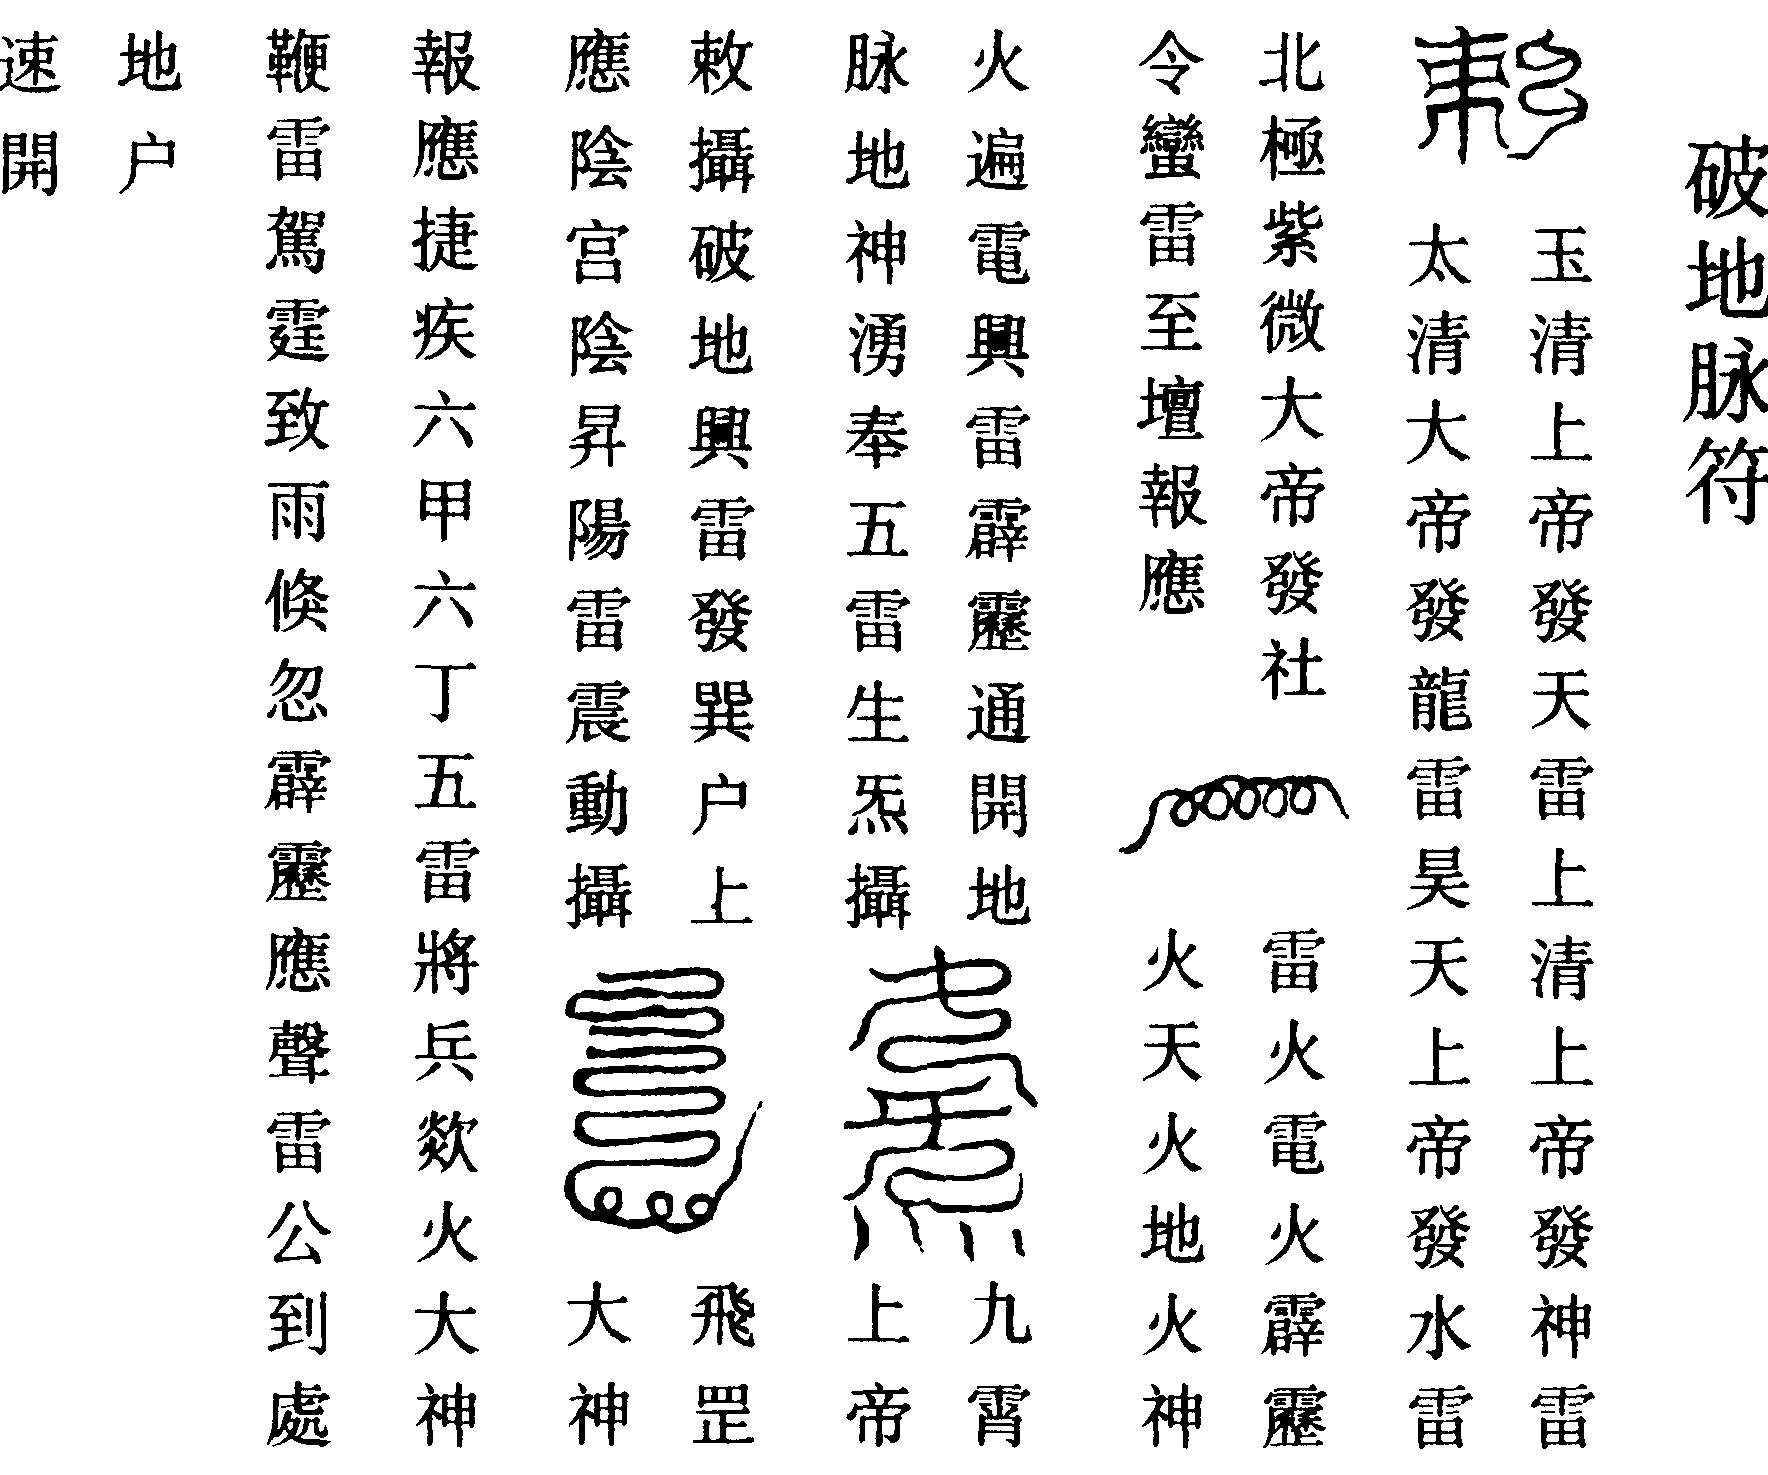 破地脉符
敕
玉清上帝發天雷上清上帝發神雷
太清大帝發龍雷昊天上帝發水雷
北極紫微大帝發社
令蠻雷至壇報應
雷火電火霹靂
火天火地火神
火遍電興雷霹靂通開地
脉地神湧奉五雷生炁攝
九霄
上帝
敕攝破地興雷發巽户上
應陰宫陰昇陽雷震動攝
飛罡
大神
報應捷疾六甲六丁五雷將兵欻火大神
鞭雷駕霆致雨倏忽霹靂應聲雷公到處
地户
速開